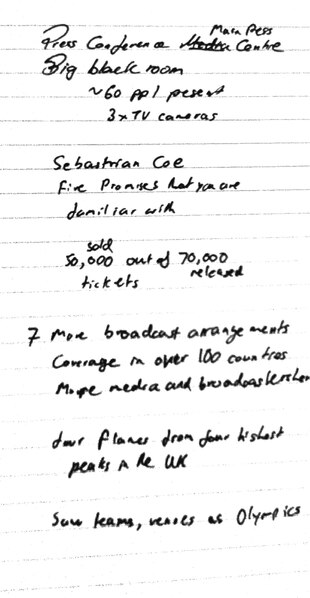 Main Press
Press Conference Media Centre
Big black room
~60 ppl present
3 x TV cameras
Sebastrian Coe
Five Promises that you are
familiar with
sold
50,000 out of 70,000
released
tickets
7 More broadcast arrangements
Coverage in over 100 countries
More media and broadcasters
four flames from four highest
peaks in the UK
Same teams, venues as Olympics